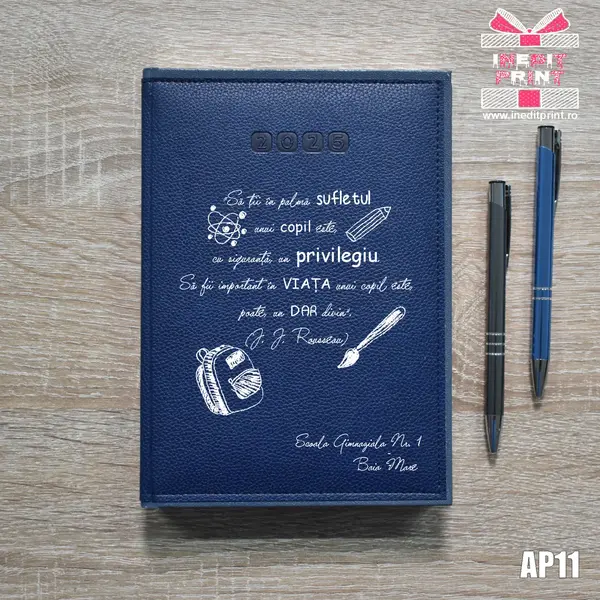 INEDIT
PRINT
www.ineditprint.ro
2026
Să ții în palmă sufletul
unui copil este,
cu siguranță, un privilegiu.
Să fii important în VIAȚA unui copil este,
poate, un DAR divin”.
(J. J. Rousseau)
Scoala Gimnaziala Nr. 1
-
Baia Mare
AP11